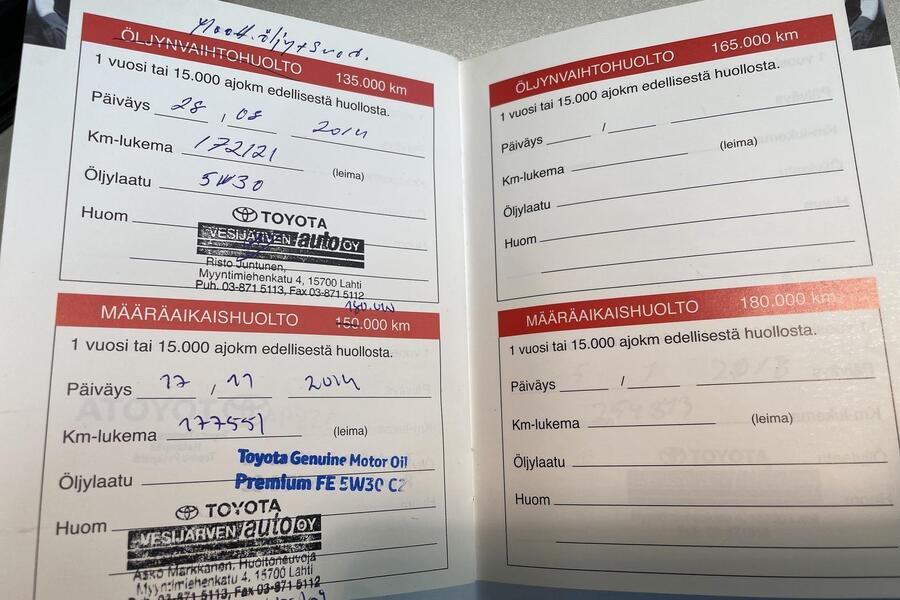 Moott. öljy + Suod.
ÖLJYNVAIHTOHUOLTO 135.000 km
1 vuosi tai 15.000 ajokm edellisestä huollosta.
Päiväys 28 , 08 2014
Km-lukema 172121
(leima)
Öljylaatu 5W30
Huom
TOYOTA
VESIJÄRVEN auto OY
Risto Juntunen,
Myyntimiehenkatu 4, 15700 Lahti
Puh. 03-871 5113, Fax 03-871 5112
MÄÄRÄAIKAISHUOLTO 150.000 km
1 vuosi tai 15.000 ajokm edellisestä huollosta.
Päiväys 17 / 11 2014
Km-lukema 177551
(leima)
Öljylaatu Toyota Genuine Motor Oil
Premium FE 5W30 C2
Huom
TOYOTA
VESIJÄRVEN auto OY
Asko Markkanen, Huoltoneuvoja
Myyntimiehenkatu 4, 15700 Lahti
Puh. 03-871 5113, Fax 03-871 5112
ÖLJYNVAIHTOHUOLTO 165.000 km
1 vuosi tai 15.000 ajokm edellisestä huollosta.
Päiväys /
Km-lukema
(leima)
Öljylaatu
Huom
MÄÄRÄAIKAISHUOLTO 180.000 km
1 vuosi tai 15.000 ajokm edellisestä huollosta.
Päiväys /
Km-lukema
(leima)
Öljylaatu
Huom